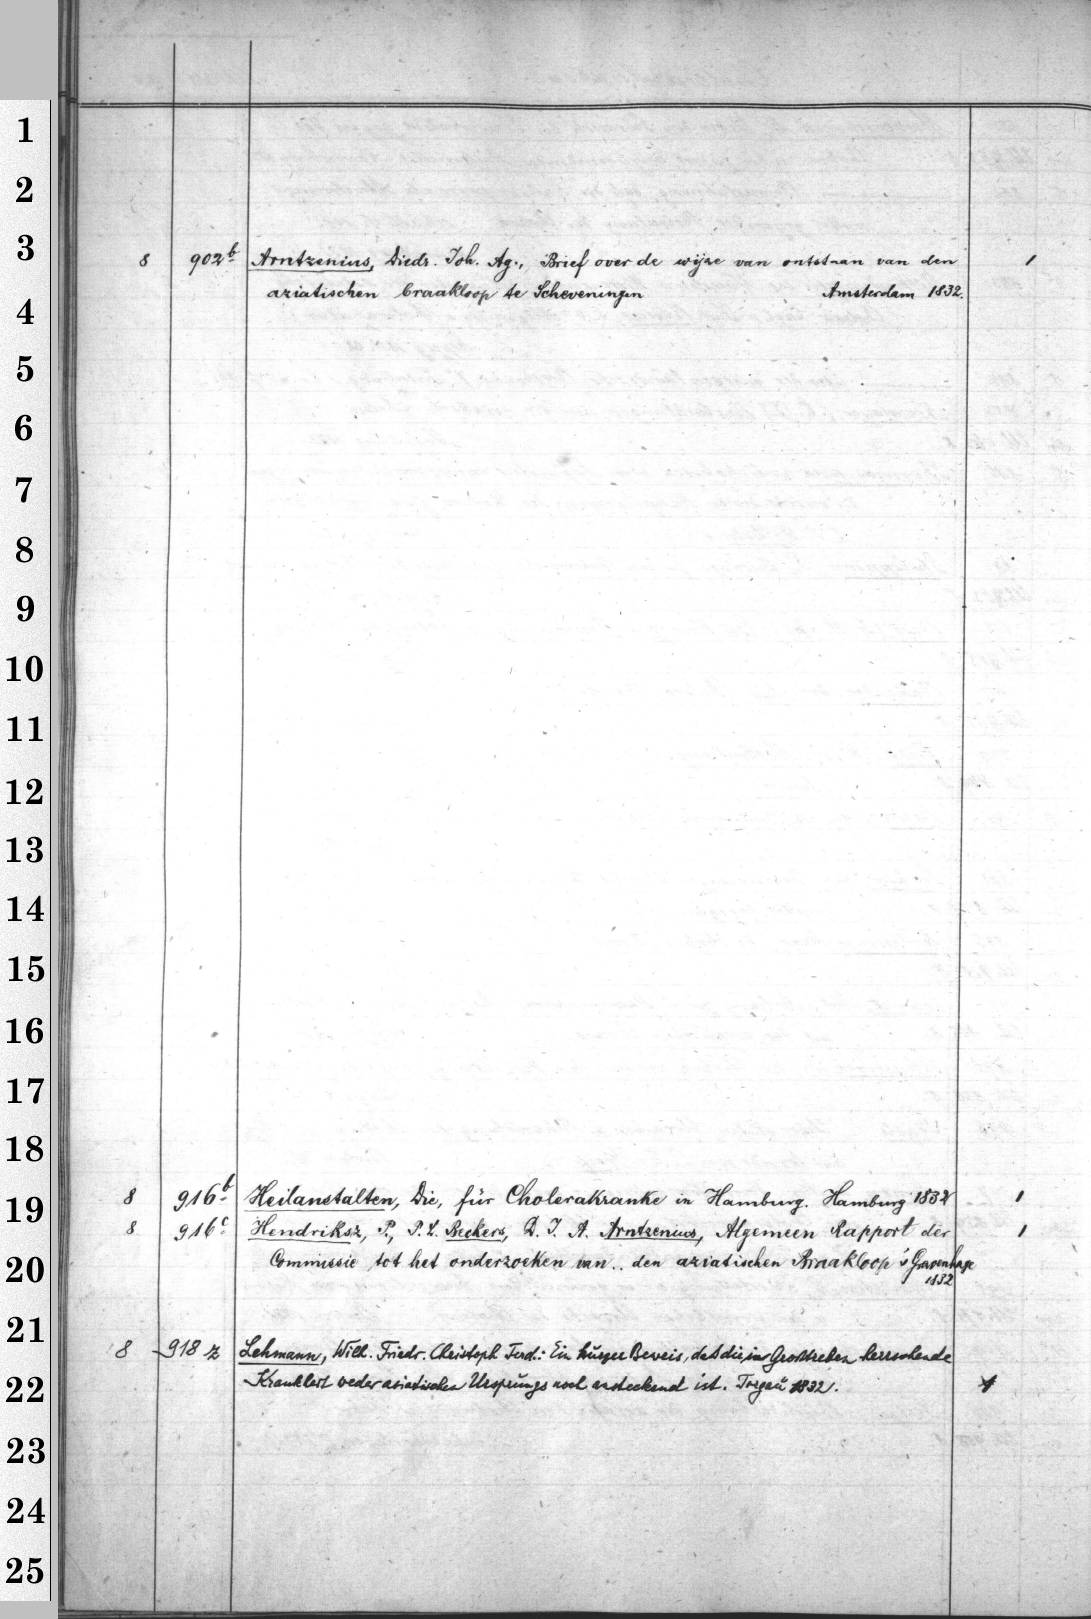 1
2
3
8 902b Arntzenius, Diedr. Joh. Ag., Brief over de wijze van ontstaan van den 1
aziatischen braakloop te Scheveningen Amsterdam 1832.
4
5
6
7
8
9
10
11
12
13
14
15
16
17
18
19
8 916b Heilanstalten, Die, für Cholerakranke in Hamburg. Hamburg 1832 1
8 916c Hendriksz, P., P. S. Beckers, D. J. A. Arntzenius, Algemeen Rapport der 1
20
Commissie tot het onderzoeken van .. den aziatischen Braakloop 's Gravenhage
1832
21
8 918 z Lehmann, Wilh. Friedr. Christoph Ferd.: Ein kurzer Beweis, daß die in Großtreben herrschende
22
Krankheit weder asiatischen Ursprungs noch ansteckend ist. Torgau 1832. 1
23
24
25